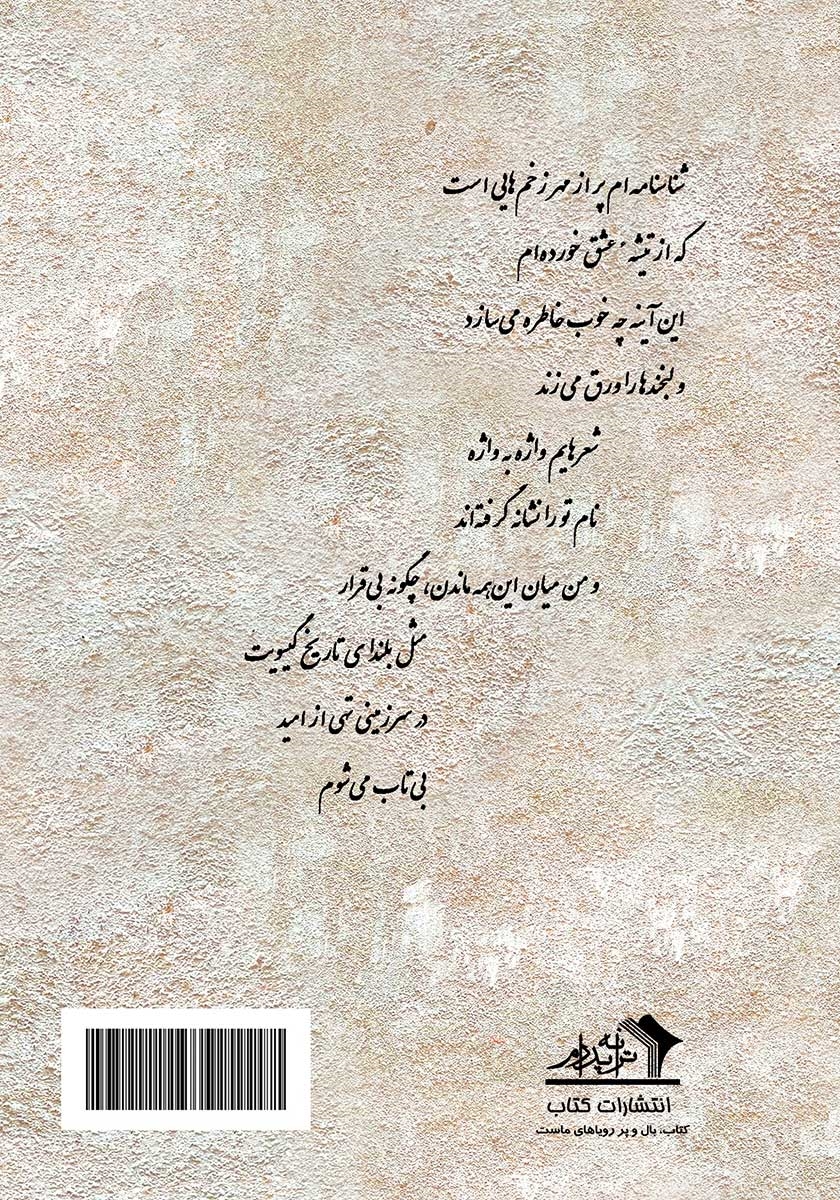 شناسنامه ام پر از مهر زخم هایی است
که از تیشهٔ عشق خورده ام
این آینه چه خوب خاطره می سازد
و لبخندها را ورق می زند
شعرهایم واژه به واژه
نام تو را نشانه گرفته اند
و من میان این همه ماندن، چگونه بی قرار
مثل بلندای تاریخ گیسویت
در سرزمینی تهی از امید
بی تاب می شوم
ترانه پدرام
انتشارات کتاب
کتاب، بال و پر رویاهای ماست